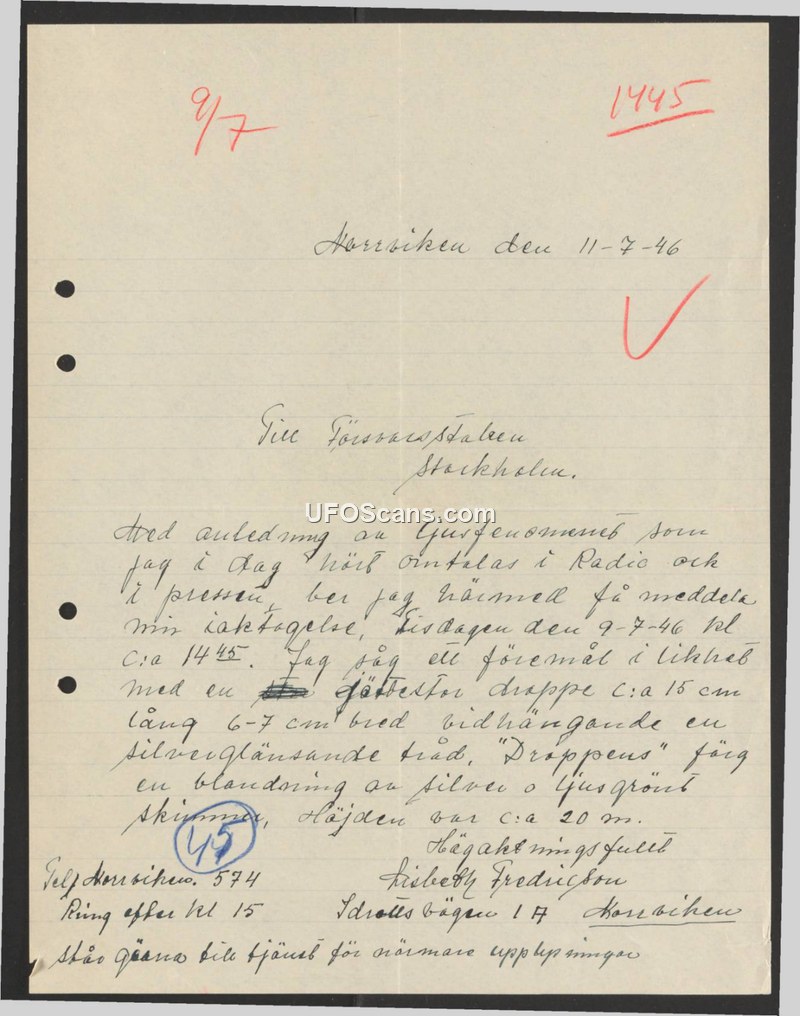 9/7
1445
Norrviken den 11-7-46
Till Försvarsstaben
Stockholm.
UFOScans.com
Med anledning av ljusfenomenet som
jag i dag hört omtalas i Radio och
i pressen, ber jag härmed få meddela
min iakttagelse, Tisdagen den 9-7-46 kl
c:a 14 45. Jag såg ett föremål i likhet
med en jättestor droppe c:a 15 cm
lång 6-7 cm bred vidhängande en
silverglänsande tråd, "Droppens" färg
en blandning av silver o ljusgrönt
skimmer, Höjden var c:a 20 m.
Högaktningsfullt
45
Telf Norrviken. 574
Lisbeth Fredricson
Ring efter kl 15
Idrottsvägen 1A Norrviken
står gärna till tjänst för närmare upplysningar